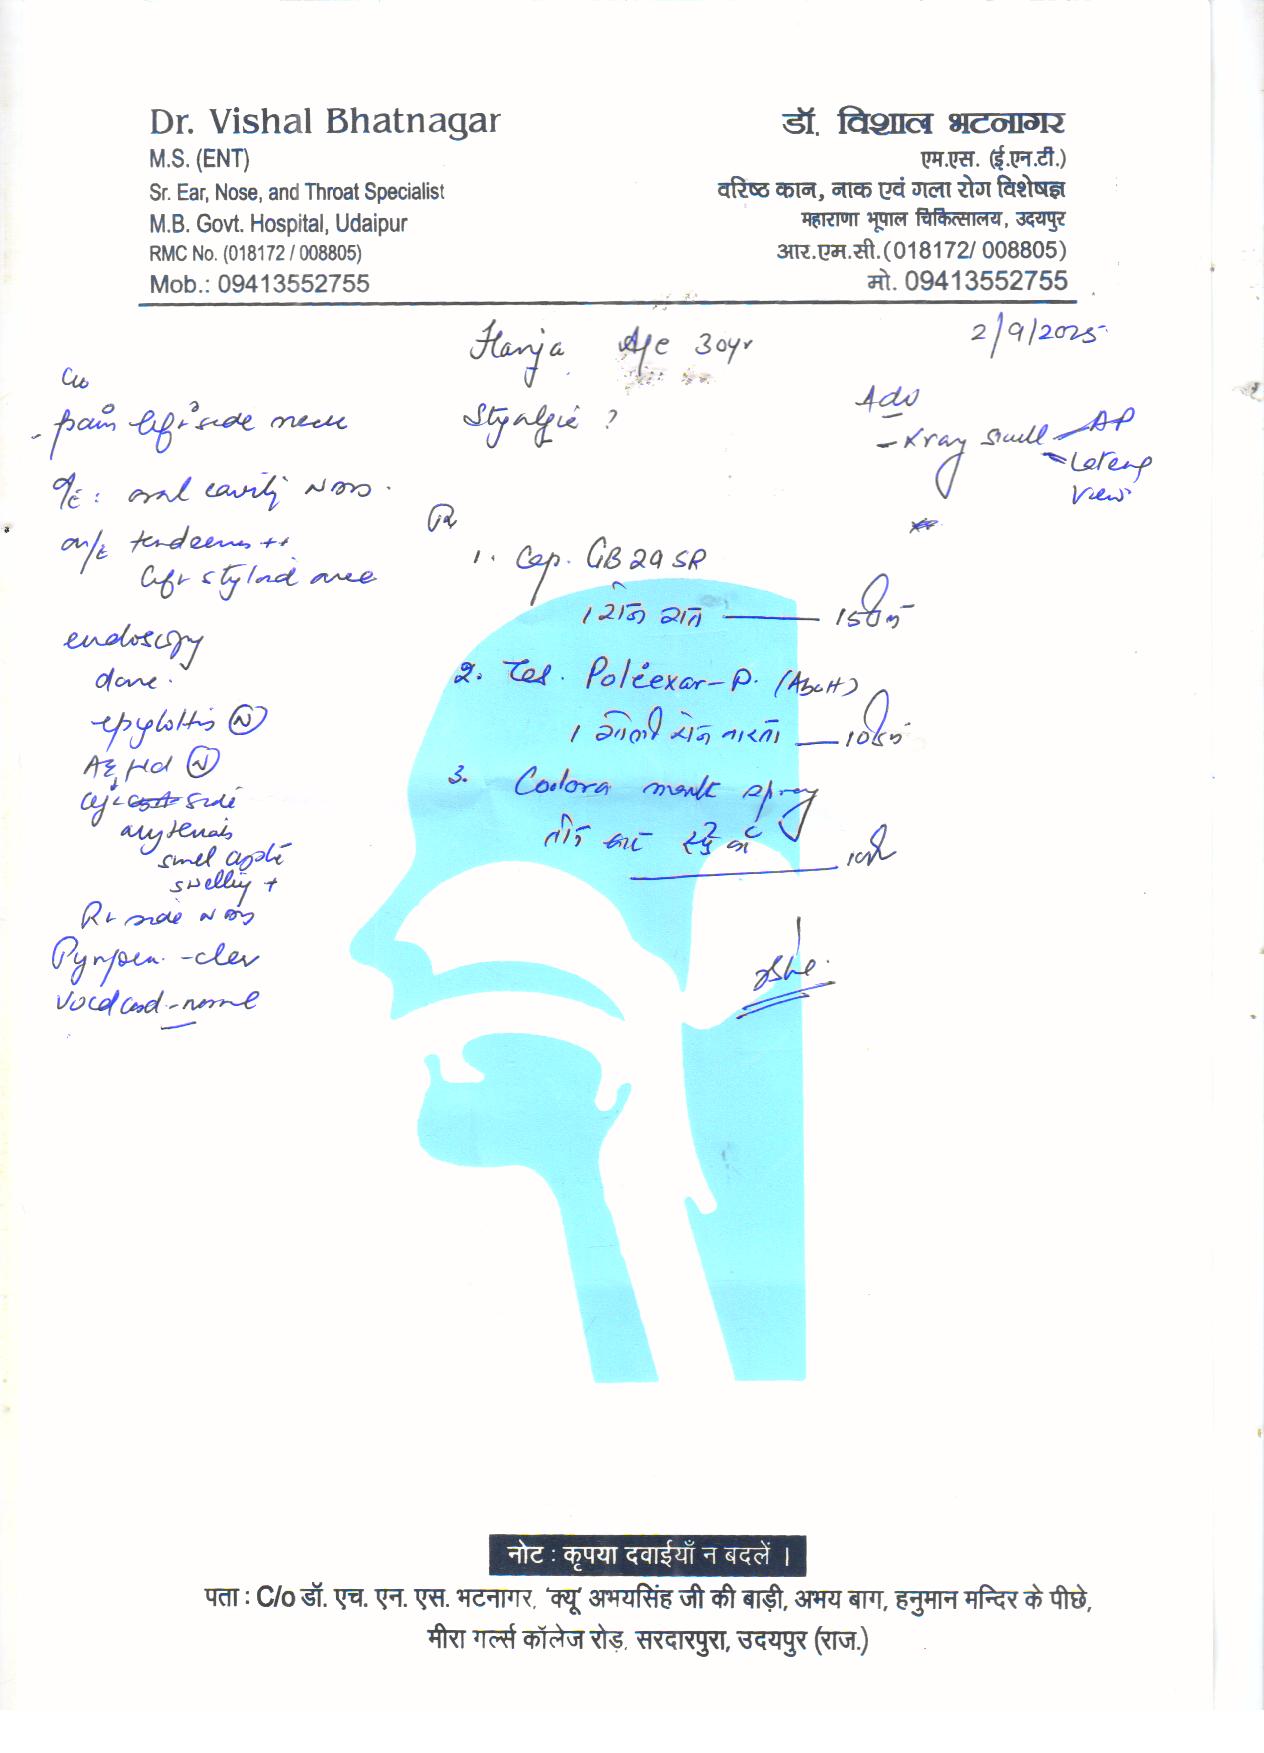 Dr. Vishal Bhatnagar
M.S. (ENT)
Sr. Ear, Nose, and Throat Specialist
M.B. Govt. Hospital, Udaipur
RMC No. (018172 / 008805)
Mob.: 09413552755
डॉ. विशाल भटनागर
एम.एस. (ई.एन.टी.)
वरिष्ठ कान, नाक एवं गला रोग विशेषज्ञ
महाराणा भूपाल चिकित्सालय, उदयपुर
आर.एम.सी.(018172/ 008805)
मो. 09413552755
Age 30yr
2/9/2025
- pain left side neck
O/E: oral cavity
tenderness ++
left styloid area
endoscopy
done.
epyglottis N
N
side
arytenoid
swelling +
Rt side
- clear
Vocal cord -
Styalgia ?
Adv
- Xray skull - AP
- Lateral
view
Rx
1. Cap. GB 29 SR
1 रोज रात — 15 दिन
2. Tab.
1 गोली रोज — 10 दिन
3. spray
नोट : कृपया दवाईयाँ न बदलें ।
पता : C/o डॉ. एच. एन. एस. भटनागर, 'क्यू' अभयसिंह जी की बाड़ी, अभय बाग, हनुमान मन्दिर के पीछे,
मीरा गर्ल्स कॉलेज रोड़, सरदारपुरा, उदयपुर (राज.)